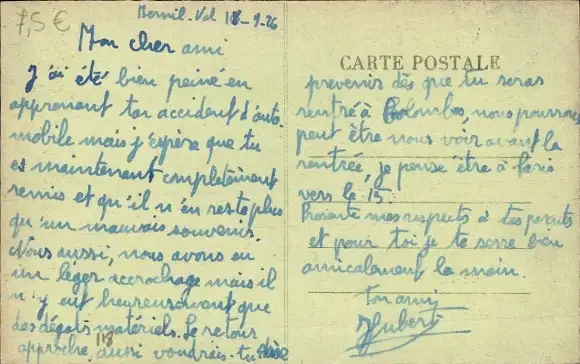 7,5 €
Mernil-Val 18-9-26
Mon cher ami
J'ai été bien peiné en
apprenant ton accident d'auto-
mobile mais j'espère que tu
es maintenant complètement
remis et qu'il n'en reste plus
qu'un mauvais souvenir.
Nous aussi, nous avons eu
un léger accrochage mais il
n'y eut heureusement que
des dégats matériels. Le retour
approche, aussi voudrais-tu
CARTE POSTALE
prevenir dès que tu seras
rentré à Colombes, nous pourrons
peut être nous voir avant la
rentrée, je pense être à Paris
vers le 15.
Présente mes respects à tes parents
et pour toi je te serre bien
amicalement la main.
ton ami
Hubert